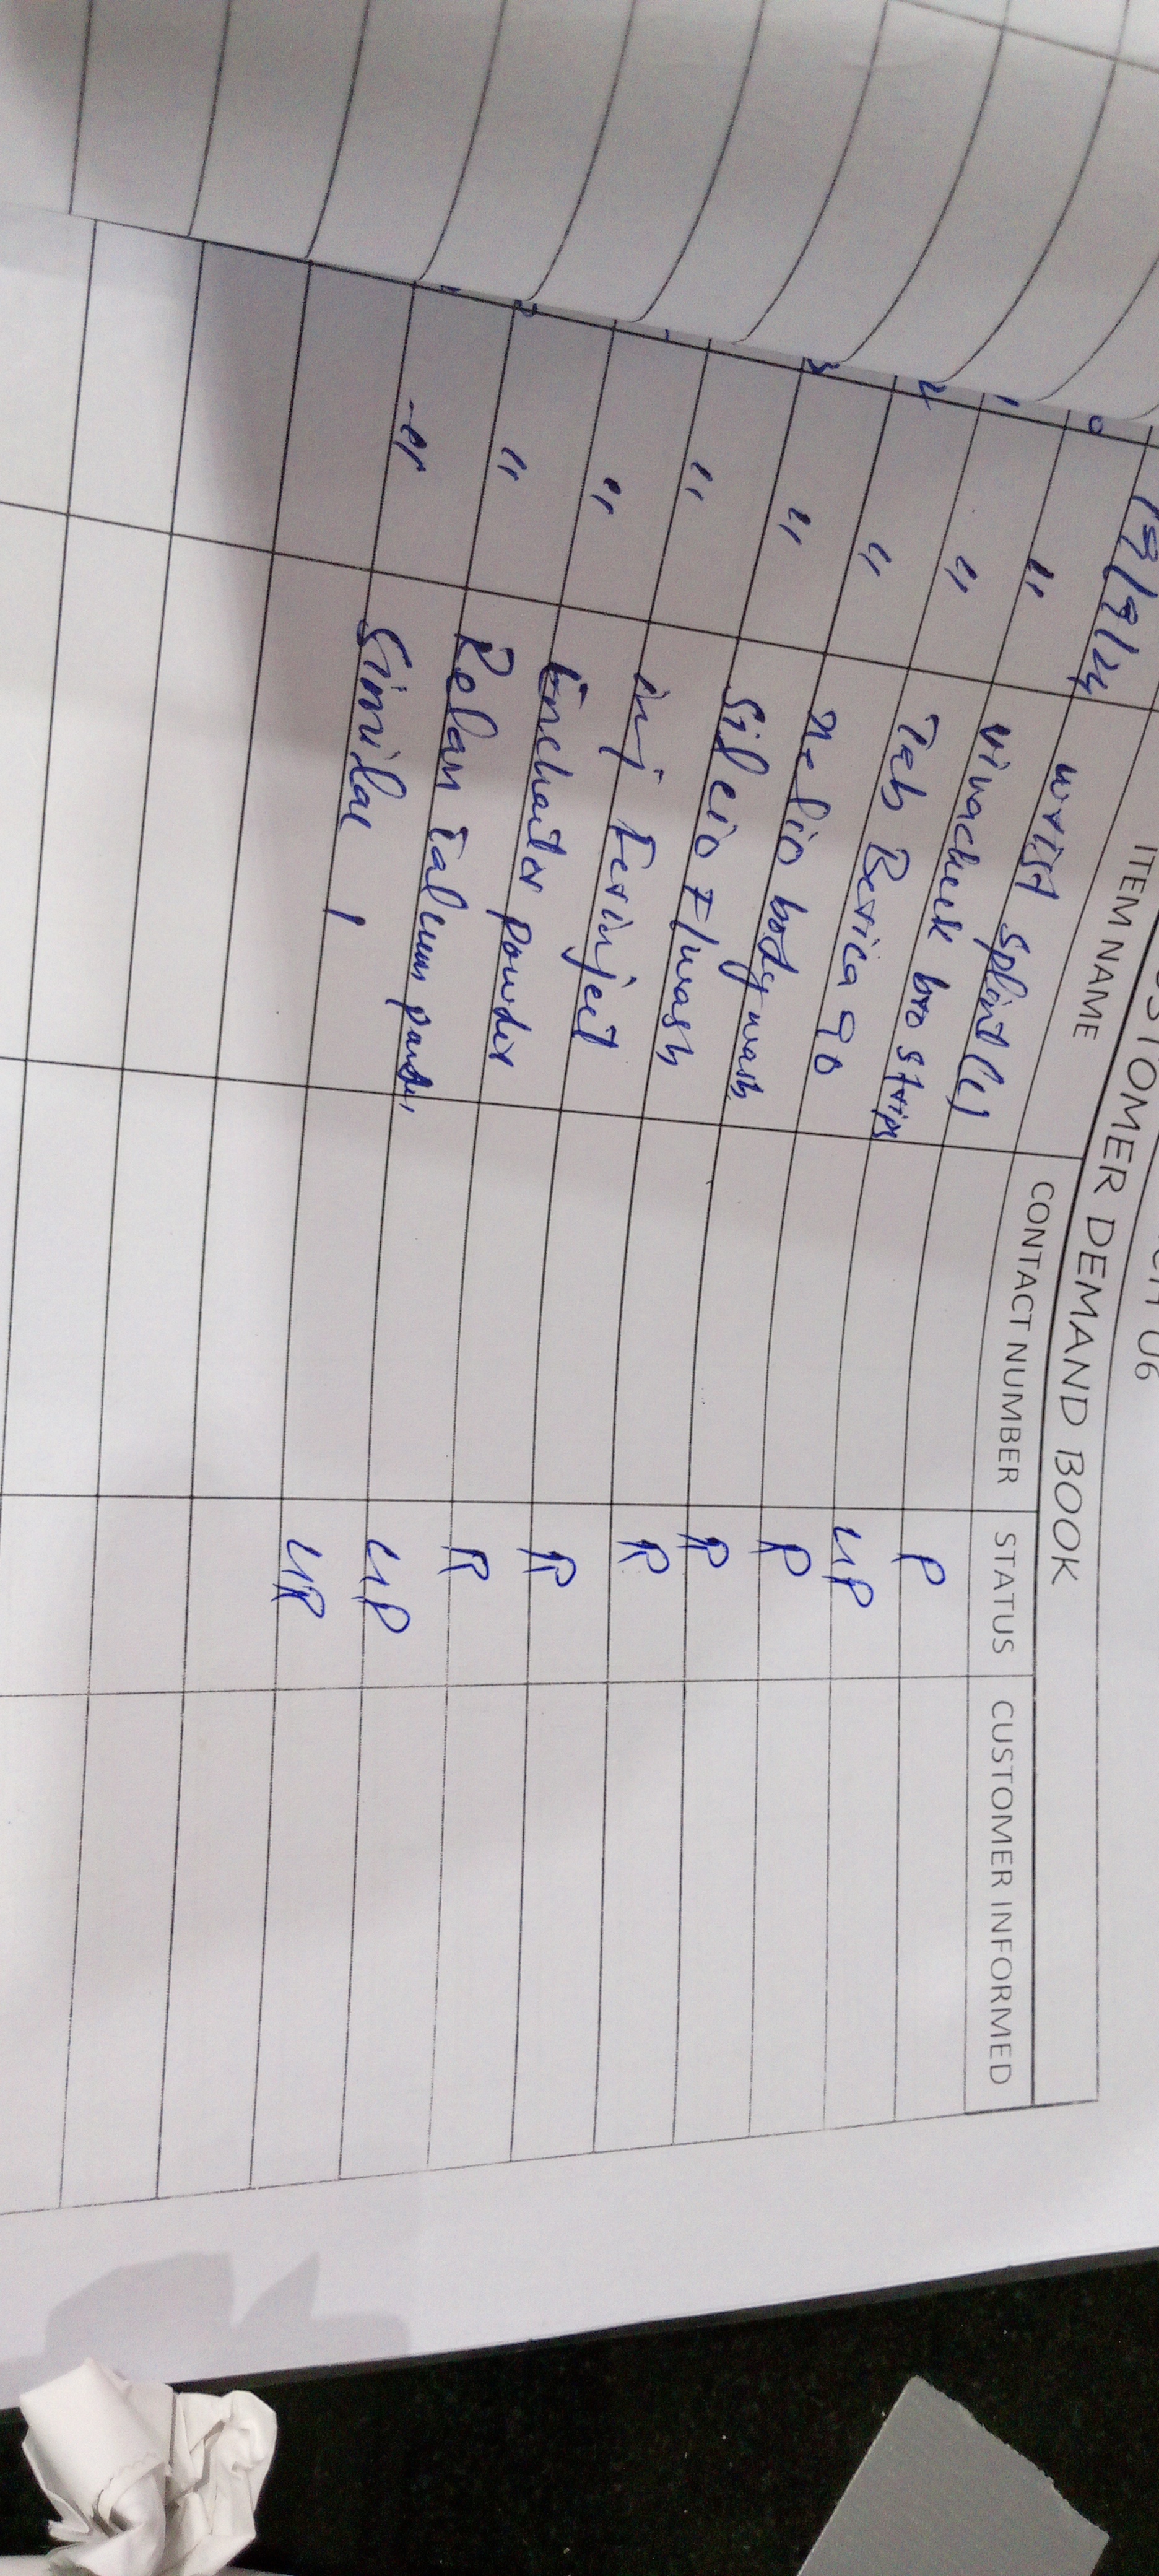 CUSTOMER DEMAND BOOK
ITEM NAME CONTACT NUMBER STATUS CUSTOMER INFORMED
19/9/24 wrist splint (L) P
" vivacheck bro strips UP
" Tab Berica 90 P
" nelio body wash R
" Sileio F/wash R
" inj Ferinject R
" Enchanter powder R
" Relan Talcum powder UP
" Similac 1 UR